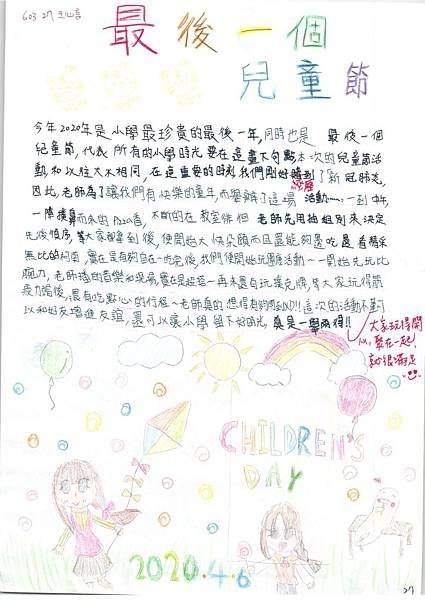 603 27
最後一個
兒童節
今年2020年是小學最珍貴的最後一年,同時也是 最後一個
兒童節,代表 所有的小學時光 要在這畫下句點本次的兒童節活
動,和以往大不相同,在這重要的時刻我們剛好 到了新冠肺炎,
因此,老師為了讓我們有快樂的童年,而舉辦了這場 活動~一到中午,
一陣撲鼻而來的Pizza香,不斷的在教室 老師先用抽組別來決定
先後順序,等大家都拿到後,便開始大快朵頤而且還能夠邊吃邊看精采
無比的 實在是有夠自在~吃完後,我們便開始玩團 活動~一開始先玩比
腕力,老師播的音樂 實在是超 再來還有玩撲克牌,等大家玩得筋
疲力盡後,還有吃點心的行程~老師真的想得有夠周到ㄋㄟ!!這次的活動不僅可
以和好友增進友誼,還可以讓小學留下好時光,真是一舉兩得!!
大家玩得開
心,聚在一起,
就很滿足
CHILDREN'S
DAY
2020.4.6
27